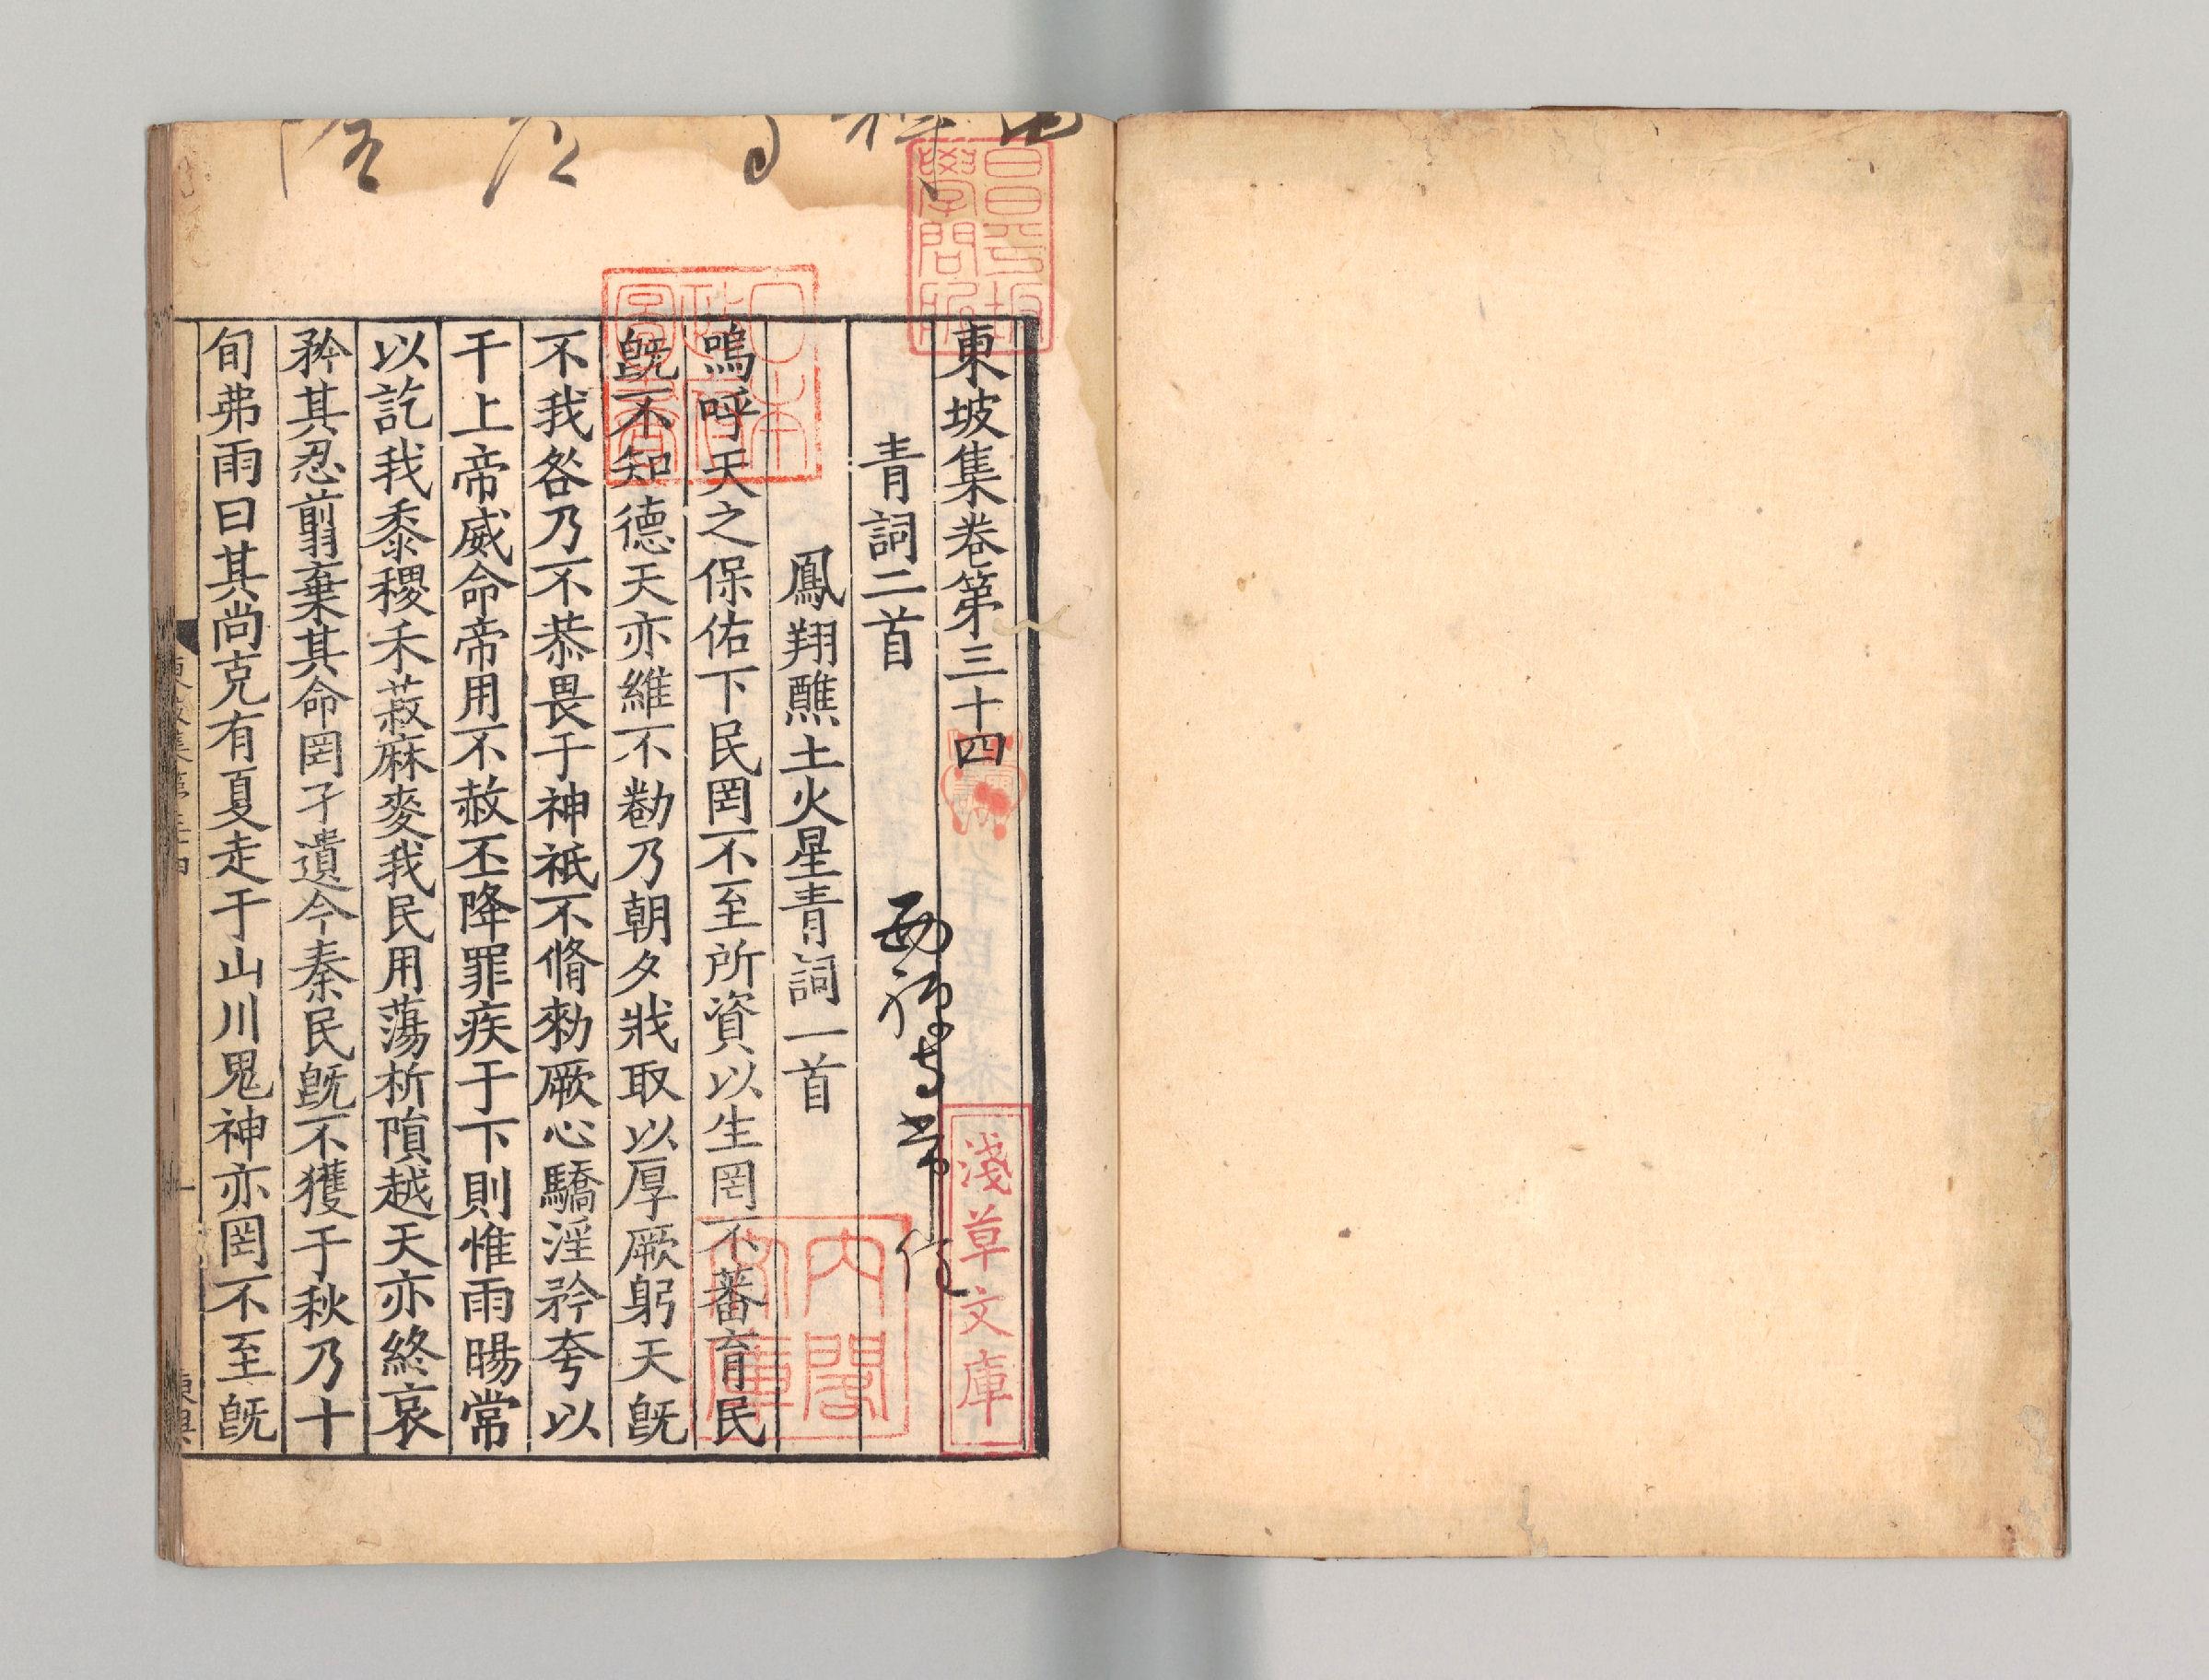 東坡集卷第三十四
青詞二首
鳳翔醮土火星青詞一首
嗚呼天之保佑下民罔不至所資以生罔不蕃育民
旣不知德天亦維不勸乃朝夕戕取以厚厥躬天旣
不我咎乃不恭畏于神祇不脩勑厥心驕淫矜夸以
干上帝威命帝用不赦丕降罪疾于下則惟雨暘常
以訖我黍稷禾菽麻麥我民用蕩析隕越天亦終哀
矜其忍翦棄其命罔孑遺今秦民旣不獲于秋乃十
旬弗雨曰其尚克有夏走于山川鬼神亦罔不至旣
昌平坂
學問所
日本
政府
圖書
淺草文庫
內閣
文庫